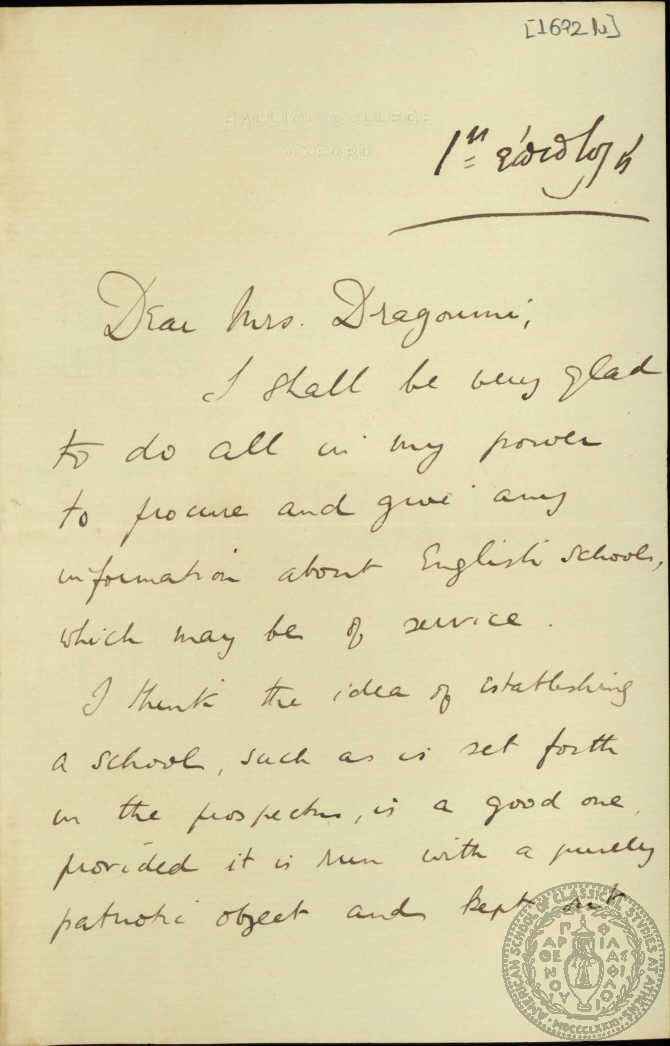 [1692 b]
BALLIOL COLLEGE
OXFORD
1η ἐπιστολή
Dear Mrs. Dragoumi,
I shall be very glad
to do all in my power
to procure and give any
information about English schools,
which may be of service.
I think the idea of establishing
a school, such as is set forth
in the prospectus, is a good one,
provided it is run with a purely
patriotic object and kept out
AMERICAN SCHOOL OF CLASSICAL STUDIES AT ATHENS
ΠΑΡΘΕΝΟΥ
ΦΙΛΑΣ ΦΙΛΟΙ
MDCCCLXXXI